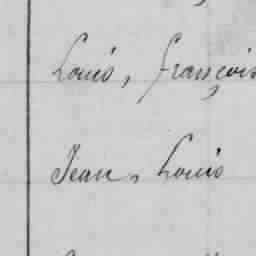 Louis, François
Jean, Louis